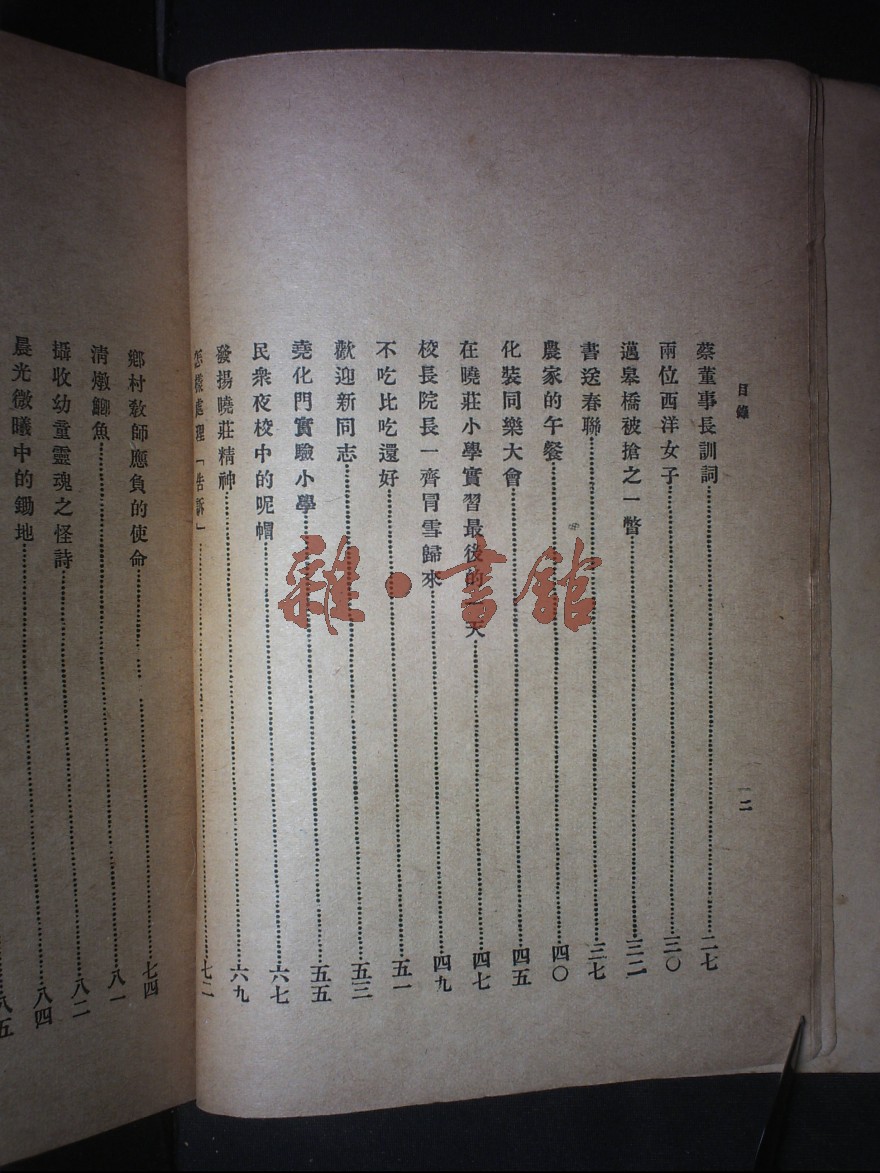 目錄
一二
蔡董事長訓詞……二七
兩位西洋女子……三〇
邁皋橋被搶之一瞥……三二
書送春聯……三七
農家的午餐……四〇
化裝同樂大會……四五
在曉莊小學實習最後的一天……四七
校長院長一齊冒雪歸來……四九
不吃比吃還好……五一
歡迎新同志……五三
堯化門實驗小學……五五
民衆夜校中的呢帽……六七
發揚曉莊精神……六九
怎樣處理「告訴」……七二
鄉村教師應負的使命……七四
清燉鯽魚……八一
攝收幼童靈魂之怪詩……八二
晨光微曦中的鋤地……八四
八五
雜·書館